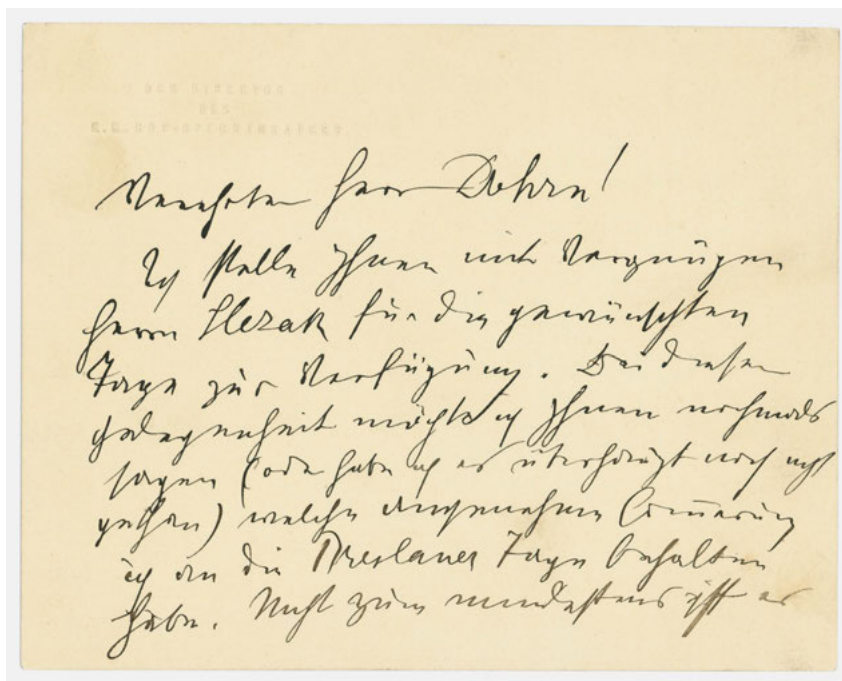 DER DIRECTOR
DES
K.K. HOF-OPERNTHEATERS.
Verehrter Herr Dohrn!
Ich stelle Ihnen mit Vergnügen
Herrn Slezak für die gewünschten
Tage zur Verfügung. Bei dieser
Gelegenheit möchte ich Ihnen nochmals
sagen (oder habe ich es überhaupt noch nicht
gethan) welche angenehme Erinnerung
ich an die Breslauer Tage behalten
habe. Nicht zum mindestens ist es